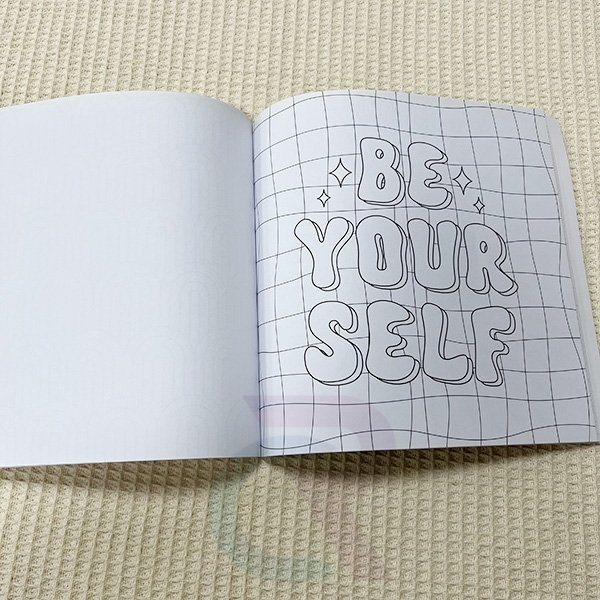 BE
YOUR
SELF